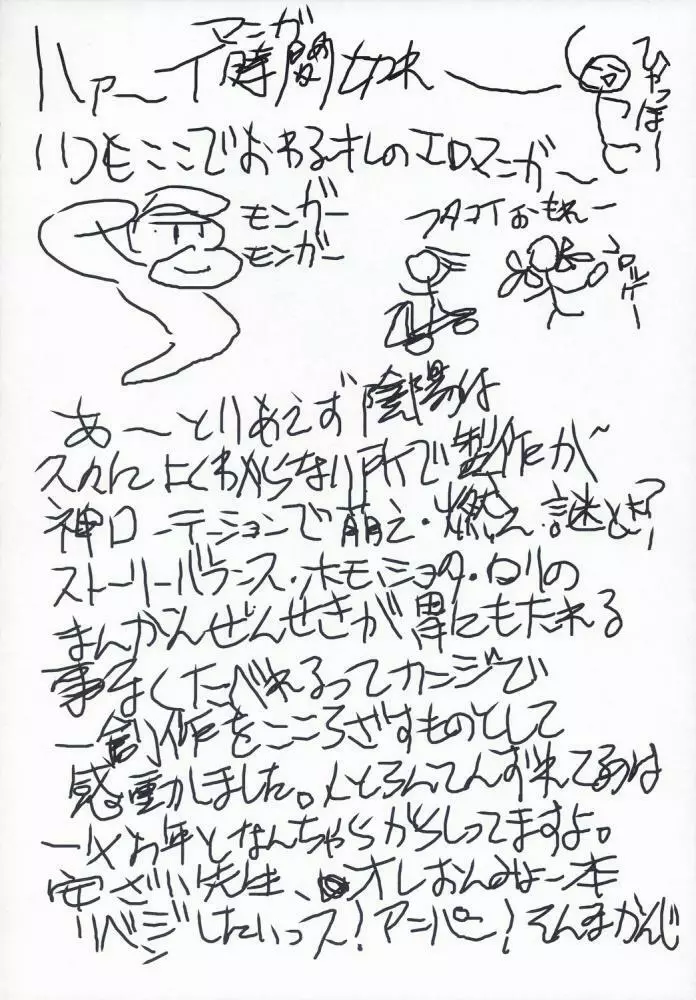 マニガ
ハァーイ 時間 ～
ひゃっほー
いつもここでおわるオレのエロマニガー
モンガー
モンガー
フタコイおもれー
あーとりあえず陰陽は
久々によくわからない所で製作が
神ローテーションで萌え・燃え・謎とき?
ストーリーバランス・ホモ・ショタ・ロリの
まんかんぜんせきが胃にもたれる
事なくたべれるってカンジで
一創作をこころざすものとして
感動しました。メとろんてんずれてるのは
一×お年となんちゃらがらしってますよ。
安ざい先生、オレおんみょー本
リベンジしたいっス!アニバー!そんなかんじ